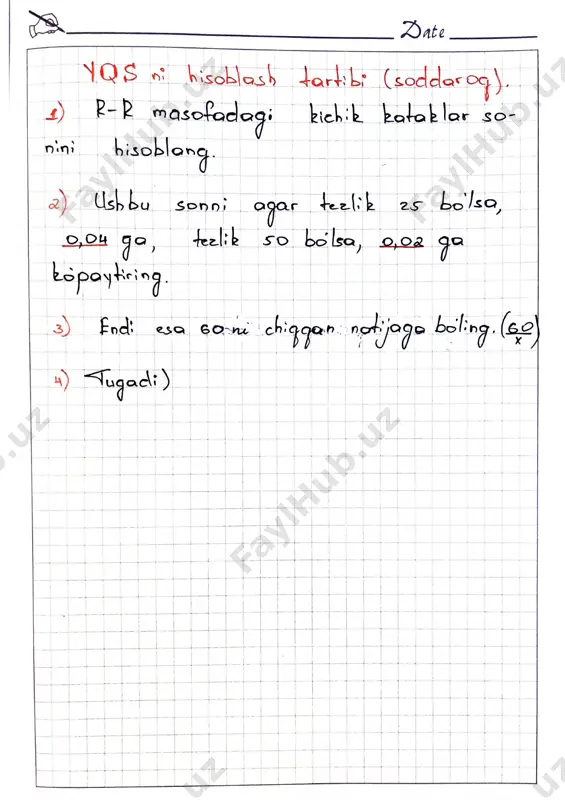 Date
YQS ni hisoblash tartibi (soddaroq).
1) R-R masofadagi kichik kataklar so-
nini hisoblang.
2) Ushbu sonni agar tezlik 25 bo'lsa,
0,04 ga, tezlik 50 bo'lsa, 0,02 ga
ko'paytiring.
3) Endi esa 60 ni chiqqan natijaga bo'ling. (60/x)
4) Tugadi)
FaylHub.uz
FaylHub.uz
FaylHub.uz
.uz
uz
uz